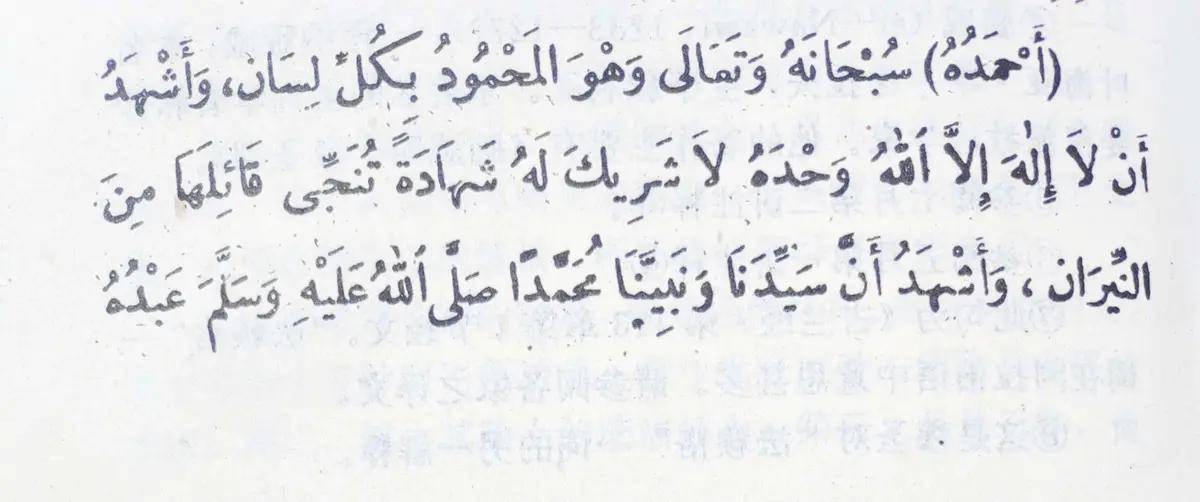 (أَحْمَدُهُ) سُبْحَانَهُ وَتَعَالَى وَهْوَ المَحْمُودُ بِكُلِّ لِسَانٍ، وَأَشْهَدُ
أَنْ لَا إِلٰهَ إِلاَّ ٱللّٰهُ وَحْدَهُ لاَ شَرِيكَ لَهُ شَهَادَةً تُنَجِّى قَائِلَهَا مِنَ
النِّيرَانِ، وَأَشْهَدُ أَنَّ سَيِّدَنَا وَنَبِيَّنَا مُحَمَّدًا صَلَّى ٱللّٰهُ عَلَيْهِ وَسَلَّمَ عَبْدُهُ